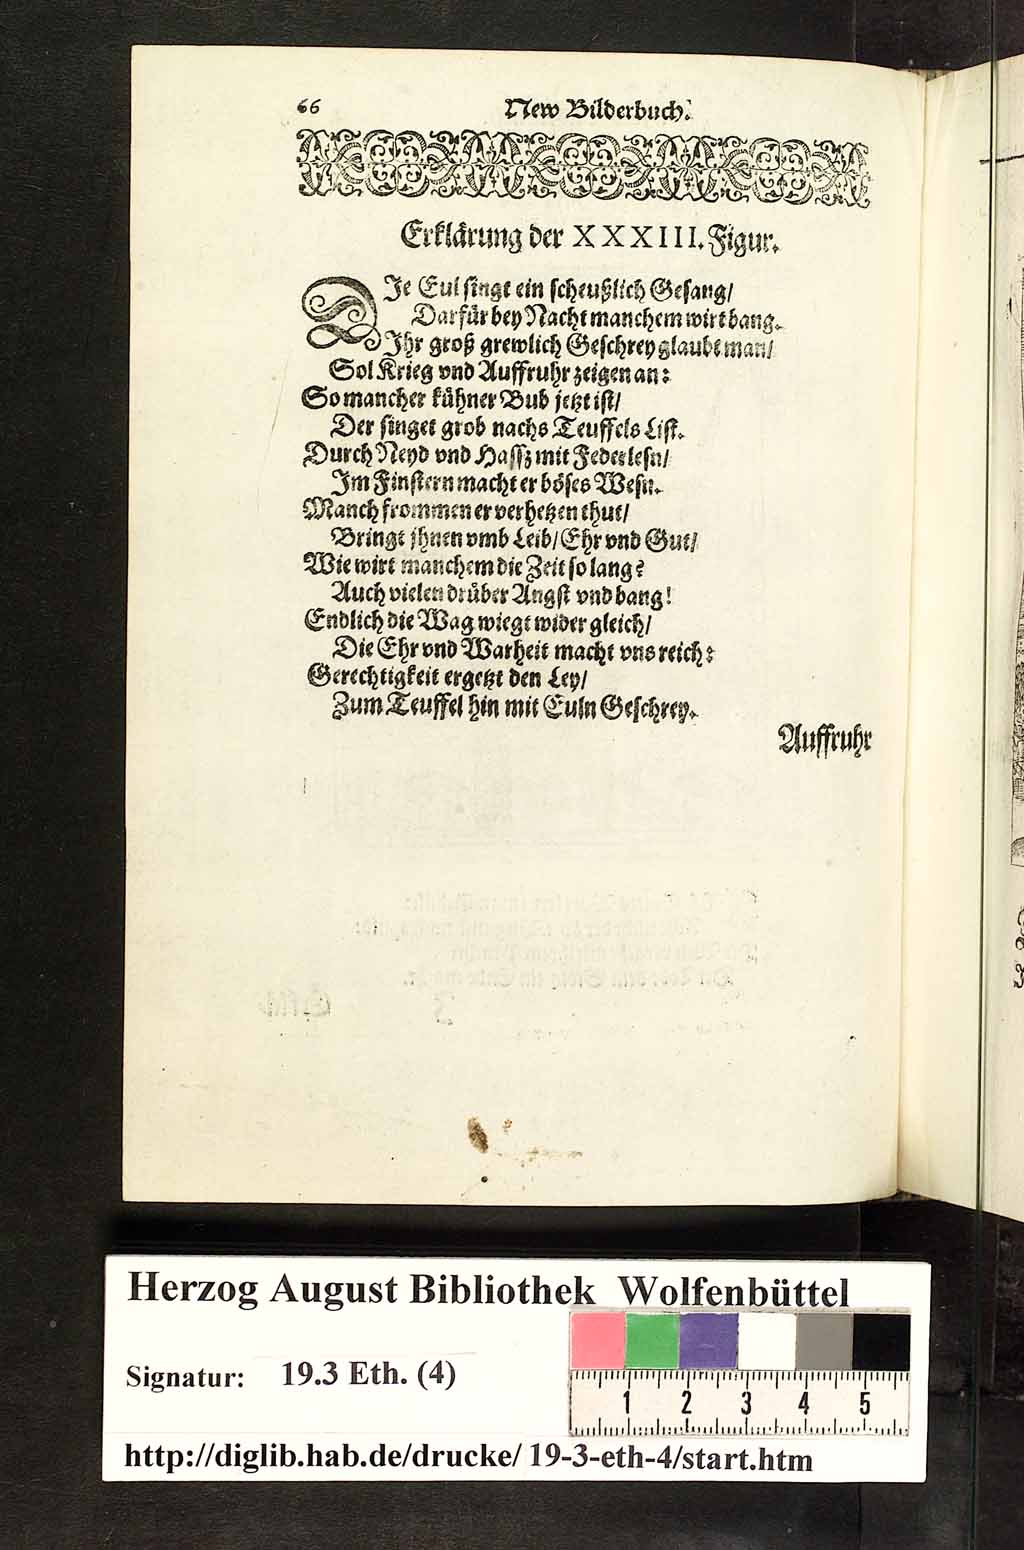 66 New Bilderbuch.
Erklärung der XXXIII. Figur.
DIe Eul singt ein scheußlich Gesang/
Darfür bey Nacht manchem wirt bang.
Ihr groß grewlich Geschrey glaubt man/
Sol Krieg vnd Auffruhr zeigen an:
So mancher kühner Bub jetzt ist/
Der singet grob nachs Teuffels List.
Durch Neyd vnd Hassz mit Federlesn/
Im Finstern macht er böses Wesn.
Manch frommen er verhetzen thut/
Bringt jhnen vmb Leib/ Ehr vnd Gut/
Wie wirt manchem die Zeit so lang?
Auch vielen drüber Angst vnd bang!
Endlich die Wag wiegt wider gleich/
Die Ehr vnd Warheit macht vns reich:
Gerechtigkeit ergetzt den Ley/
Zum Teuffel hin mit Euln Geschrey.
Auffruhr
Herzog August Bibliothek Wolfenbüttel
Signatur: 19.3 Eth. (4)
1 2 3 4 5
http://diglib.hab.de/drucke/ 19-3-eth-4/start.htm